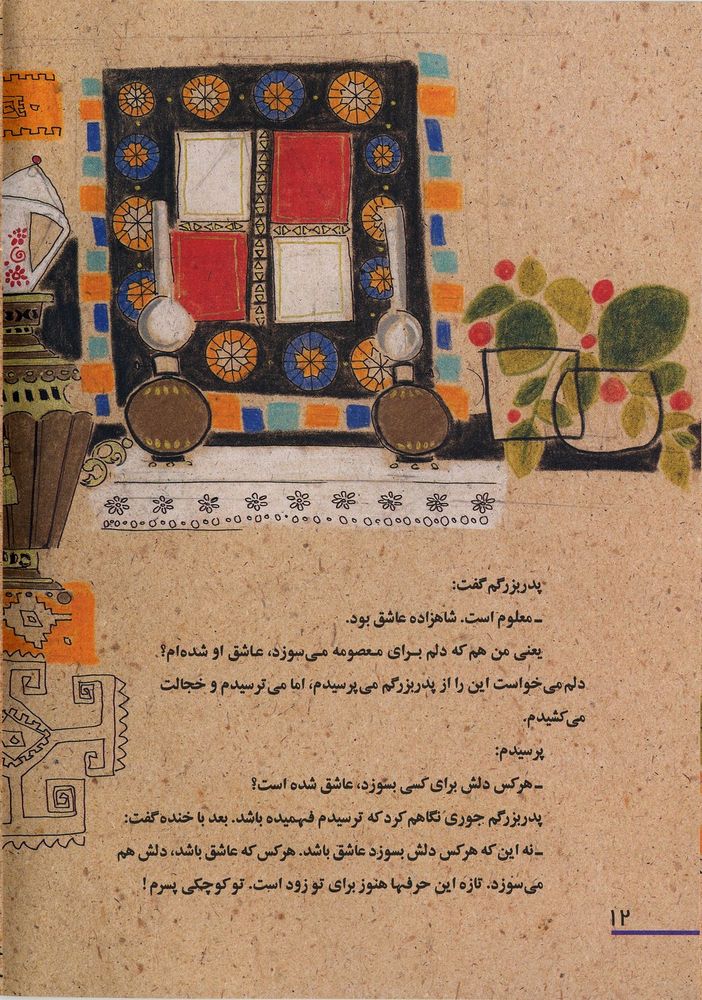 پدربزرگم گفت:
ـ معلوم است. شاهزاده عاشق بود.
یعنی من هم که دلم برای معصومه می‌سوزد، عاشق او شده‌ام؟
دلم می‌خواست این را از پدربزرگم می‌پرسیدم، اما می‌ترسیدم و خجالت
می‌کشیدم.
پرسیدم:
ـ هرکس دلش برای کسی بسوزد، عاشق شده است؟
پدربزرگم جوری نگاهم کرد که ترسیدم فهمیده باشد. بعد با خنده گفت:
ـ نه این که هرکس دلش بسوزد عاشق باشد. هرکس که عاشق باشد، دلش هم
می‌سوزد. تازه این حرفها هنوز برای تو زود است. تو کوچکی پسرم!
۱۲